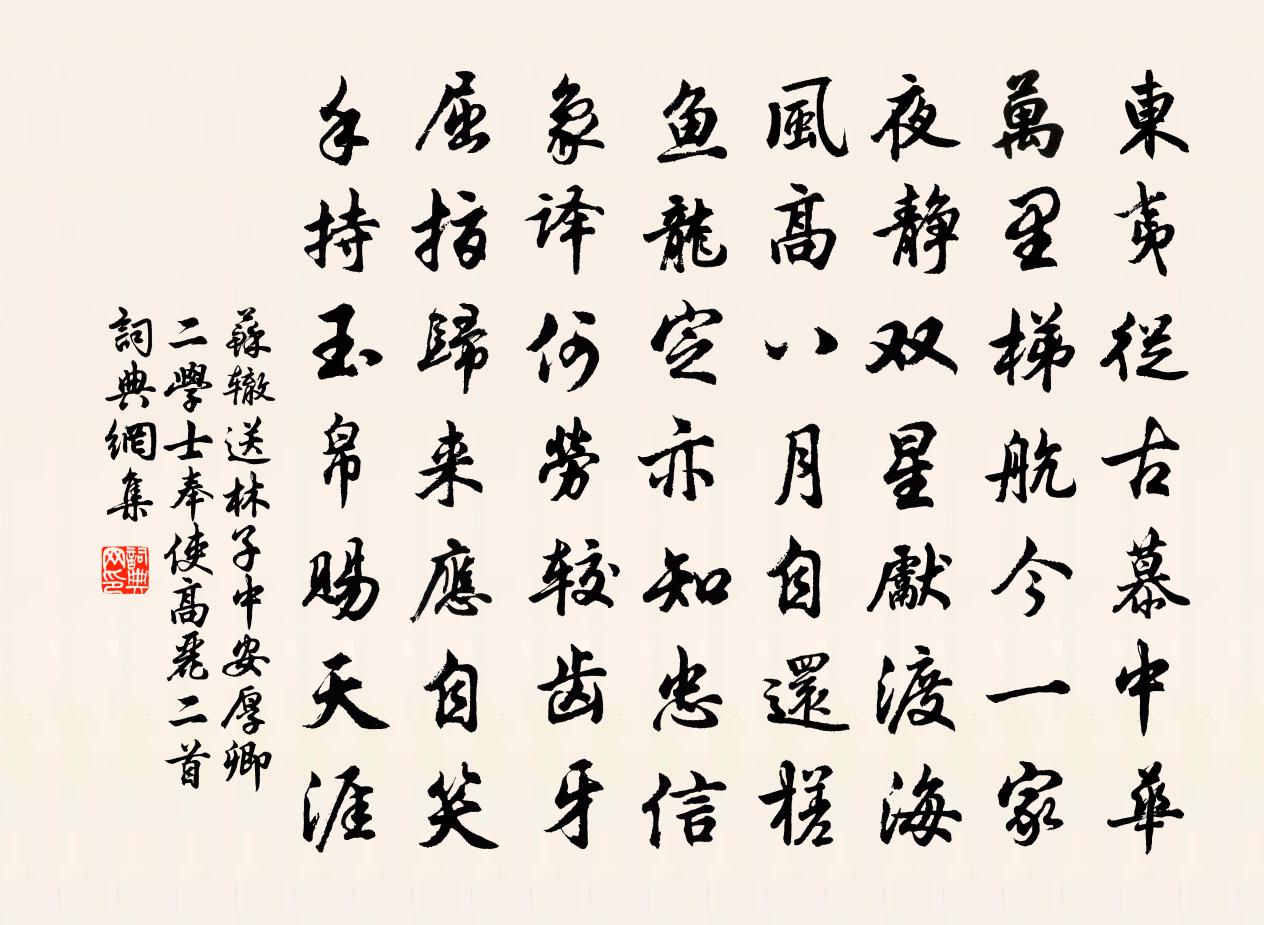 東夷從古慕中華
萬里梯航今一家
夜靜双星獻渡海
風高八月自還槎
魚龍定亦知忠信
象译何勞较齿牙
屈指歸来應自笑
手持玉帛賜天涯
蘇辙送林子中安厚卿
二學士奉使高麗二首
詞典網集
詞典网印